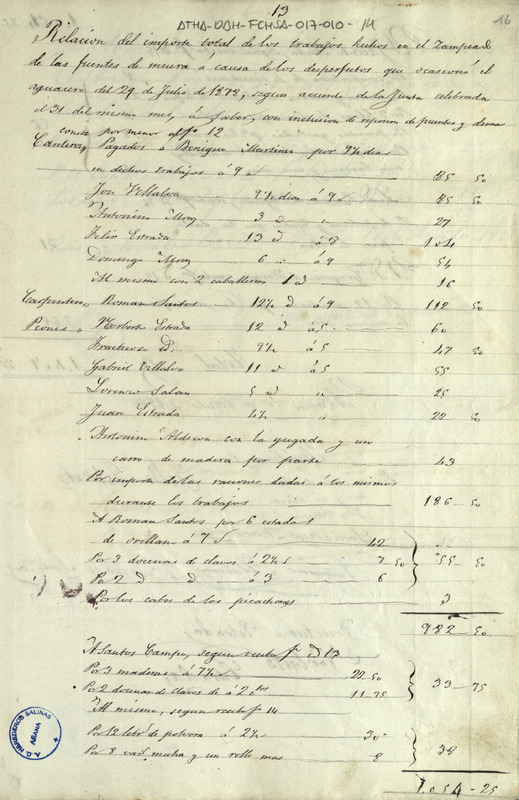 13
ATHA-DAH-FCHSA-017-010-14
16
Relacion del importe total de los trabajos hechos en el Zampeado
de las fuentes de muera a causa de los desperfectos que ocasionó el
aguacero del 29 de Julio de 1878, segun acuerdo de la Junta celebrada
el 31 del mismo mes, á saber, con inclusion de reponer de puentes y demas
como por menor al fº 12
Canteros, Pagados a Benigno Martinez por 9½ dias
en dichos trabajos á 9 85 50
Jose Villalva 9½ dias á 9 85 50
Antonino Moz 3 d " 27
Felix Estrada 13 d á 8 104
Domingo Moz 6 " á 9 54
Al mismo con 2 caballerias 1 d 16
Carpintero, Roman Santos 12½ d á 9 112 50
Peones, Norberto Estrada 12 d á 5 60
Fructuoso Yd. 9½ á 5 47 50
Gabriel Villalva 11 d á 5 55
Lorenzo Salan 5 d " 25
Juan Estrada 4½ " 22 50
Antonino Aldecoa con la yugada y un
carro de madera por parte 43
Por importe de las raciones dadas á los mismos
durante los trabajos 186 50
A Roman Santos por 6 estados
de orillano á 7 42
Por 3 docenas de clavos á 2½ 7-50 55-50
Por 2 d d á 3 6
Por los cabos de los picachones 3
982 50
A Santos Campo, segun recibo fº 13
Por 3 maderas á 7½ 22-50
Por 2 docenas de clavos de á 2 11-25 33-75
Al mismo, segun recibo fº 14
Por 12 lib de polvora á 2½ 30
Por 8 var mecha y un rollo mas 8 38
1.054-25
A.D. HEREDEROS SALINAS
ARANA